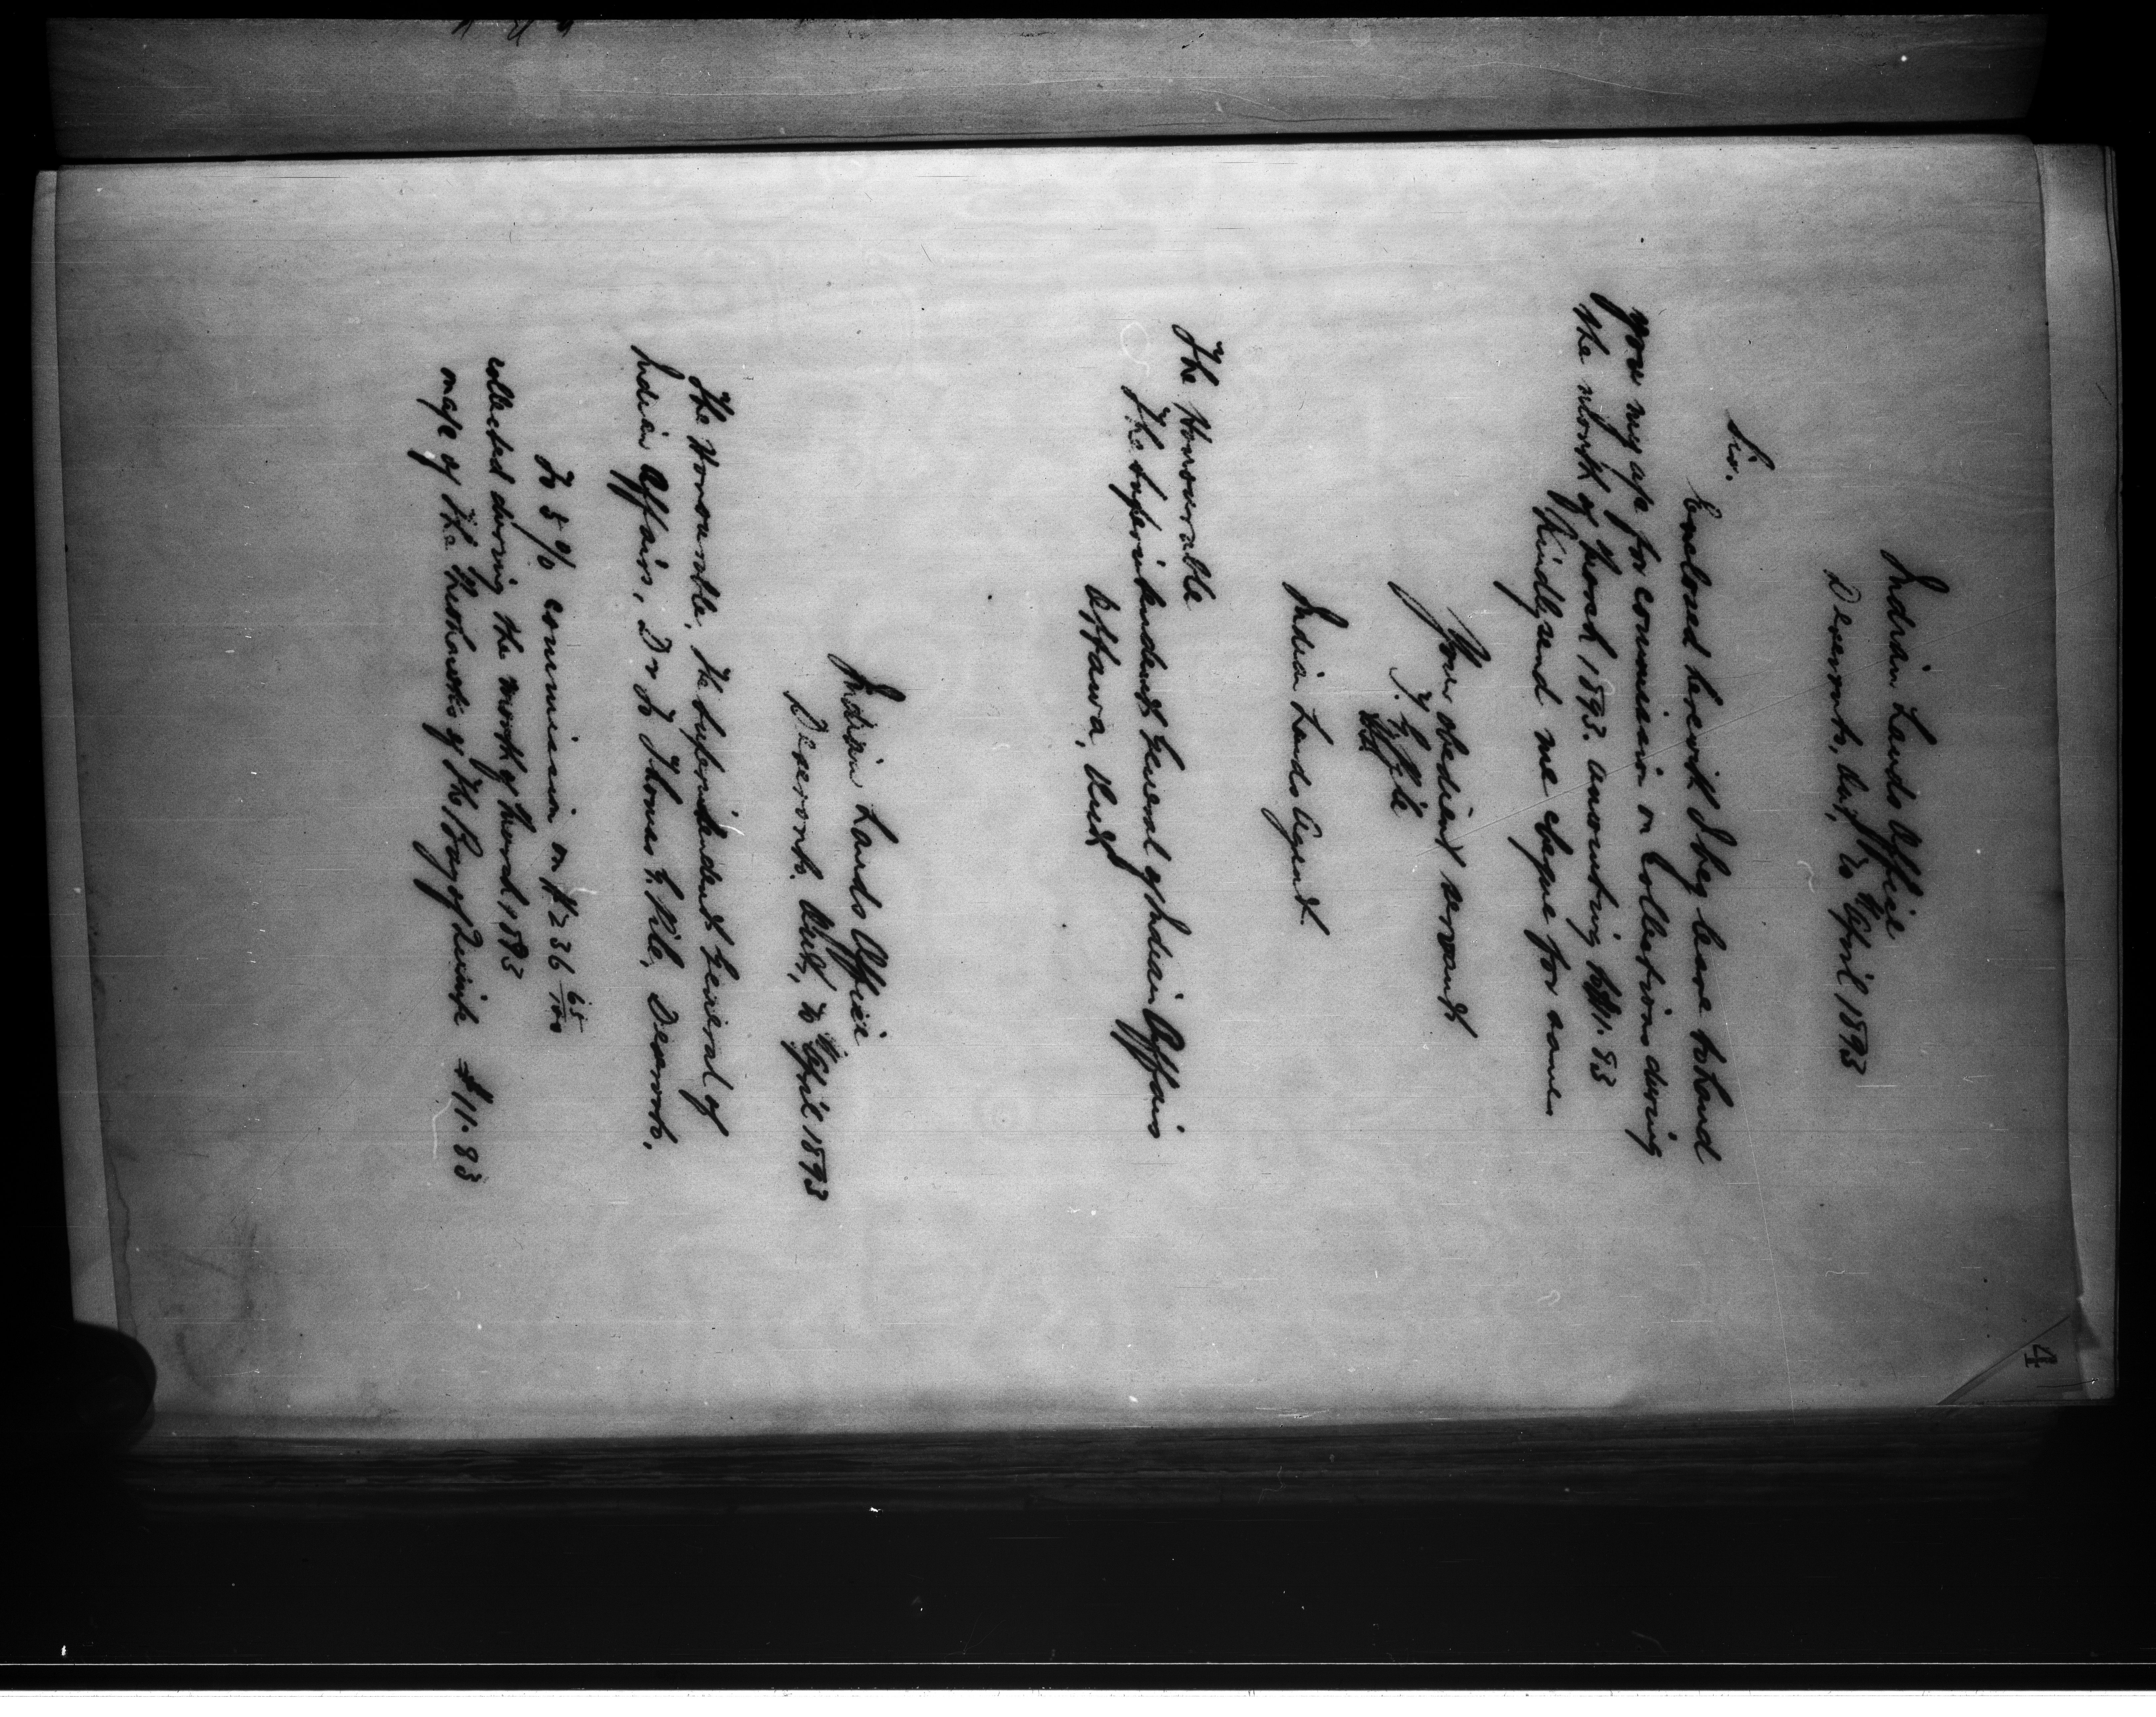 4
Indian Lands Office
Deseronto, Ont, April 1893
Sir.
Enclosed herewith I beg leave to hand
you my a/c for commission on Collections during
the month of March 1893. amounting to $11.83
Kindly send me cheque for same
Your obedient servant
Indian Lands Agent.
The Honourable
The Superintendent General of Indian Affairs
Ottawa, Ont
Indian Lands Office
Deseronto. Ont, April 1893
The Honourable, The Superintendent General of
Indian Affairs, Dr to Thomas G. Pile, Deseronto.
To 5 % commission on $236 65/100
collected during the month of March 1893
on a/c of the Mohawks of the Bay of Quinte $11.83